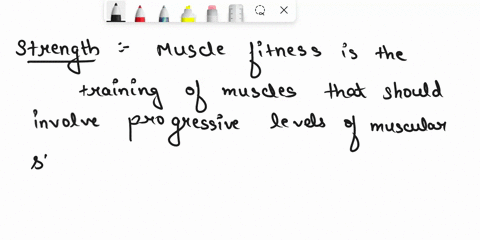 Strength :- Muscle fitness is the
training of muscles that should
involve progressive levels of muscular
s